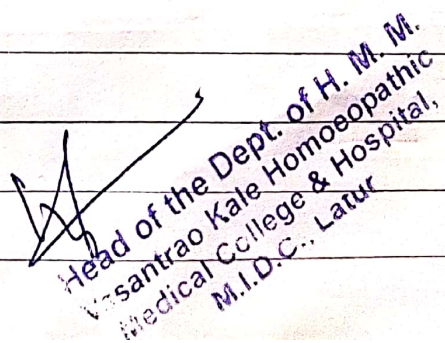 Head of the Dept. of H. M. M.
Vasantrao Kale Homoeopathic
Medical College & Hospital,
M.I.D.C., Latur